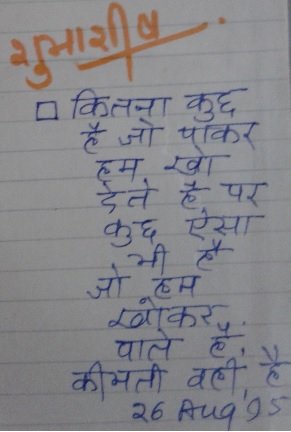 शुभाशीष.
□ कितना कुछ
है जो पाकर
हम खो
देते है पर
कुछ ऐसा
भी है
जो हम
खोकर
पाते है,
कीमती वही है
26 Aug 95